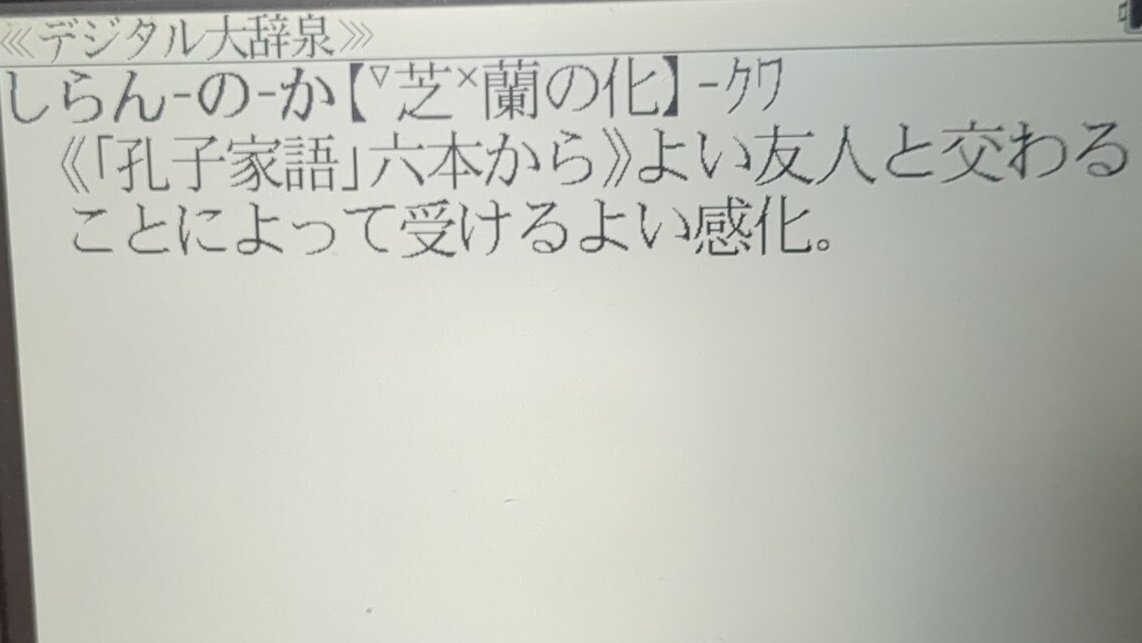 ⋘デジタル大辞泉⋙
しらん-の-か【▽芝×蘭の化】-クワ
《「孔子家語」六本から》よい友人と交わる
ことによって受けるよい感化。